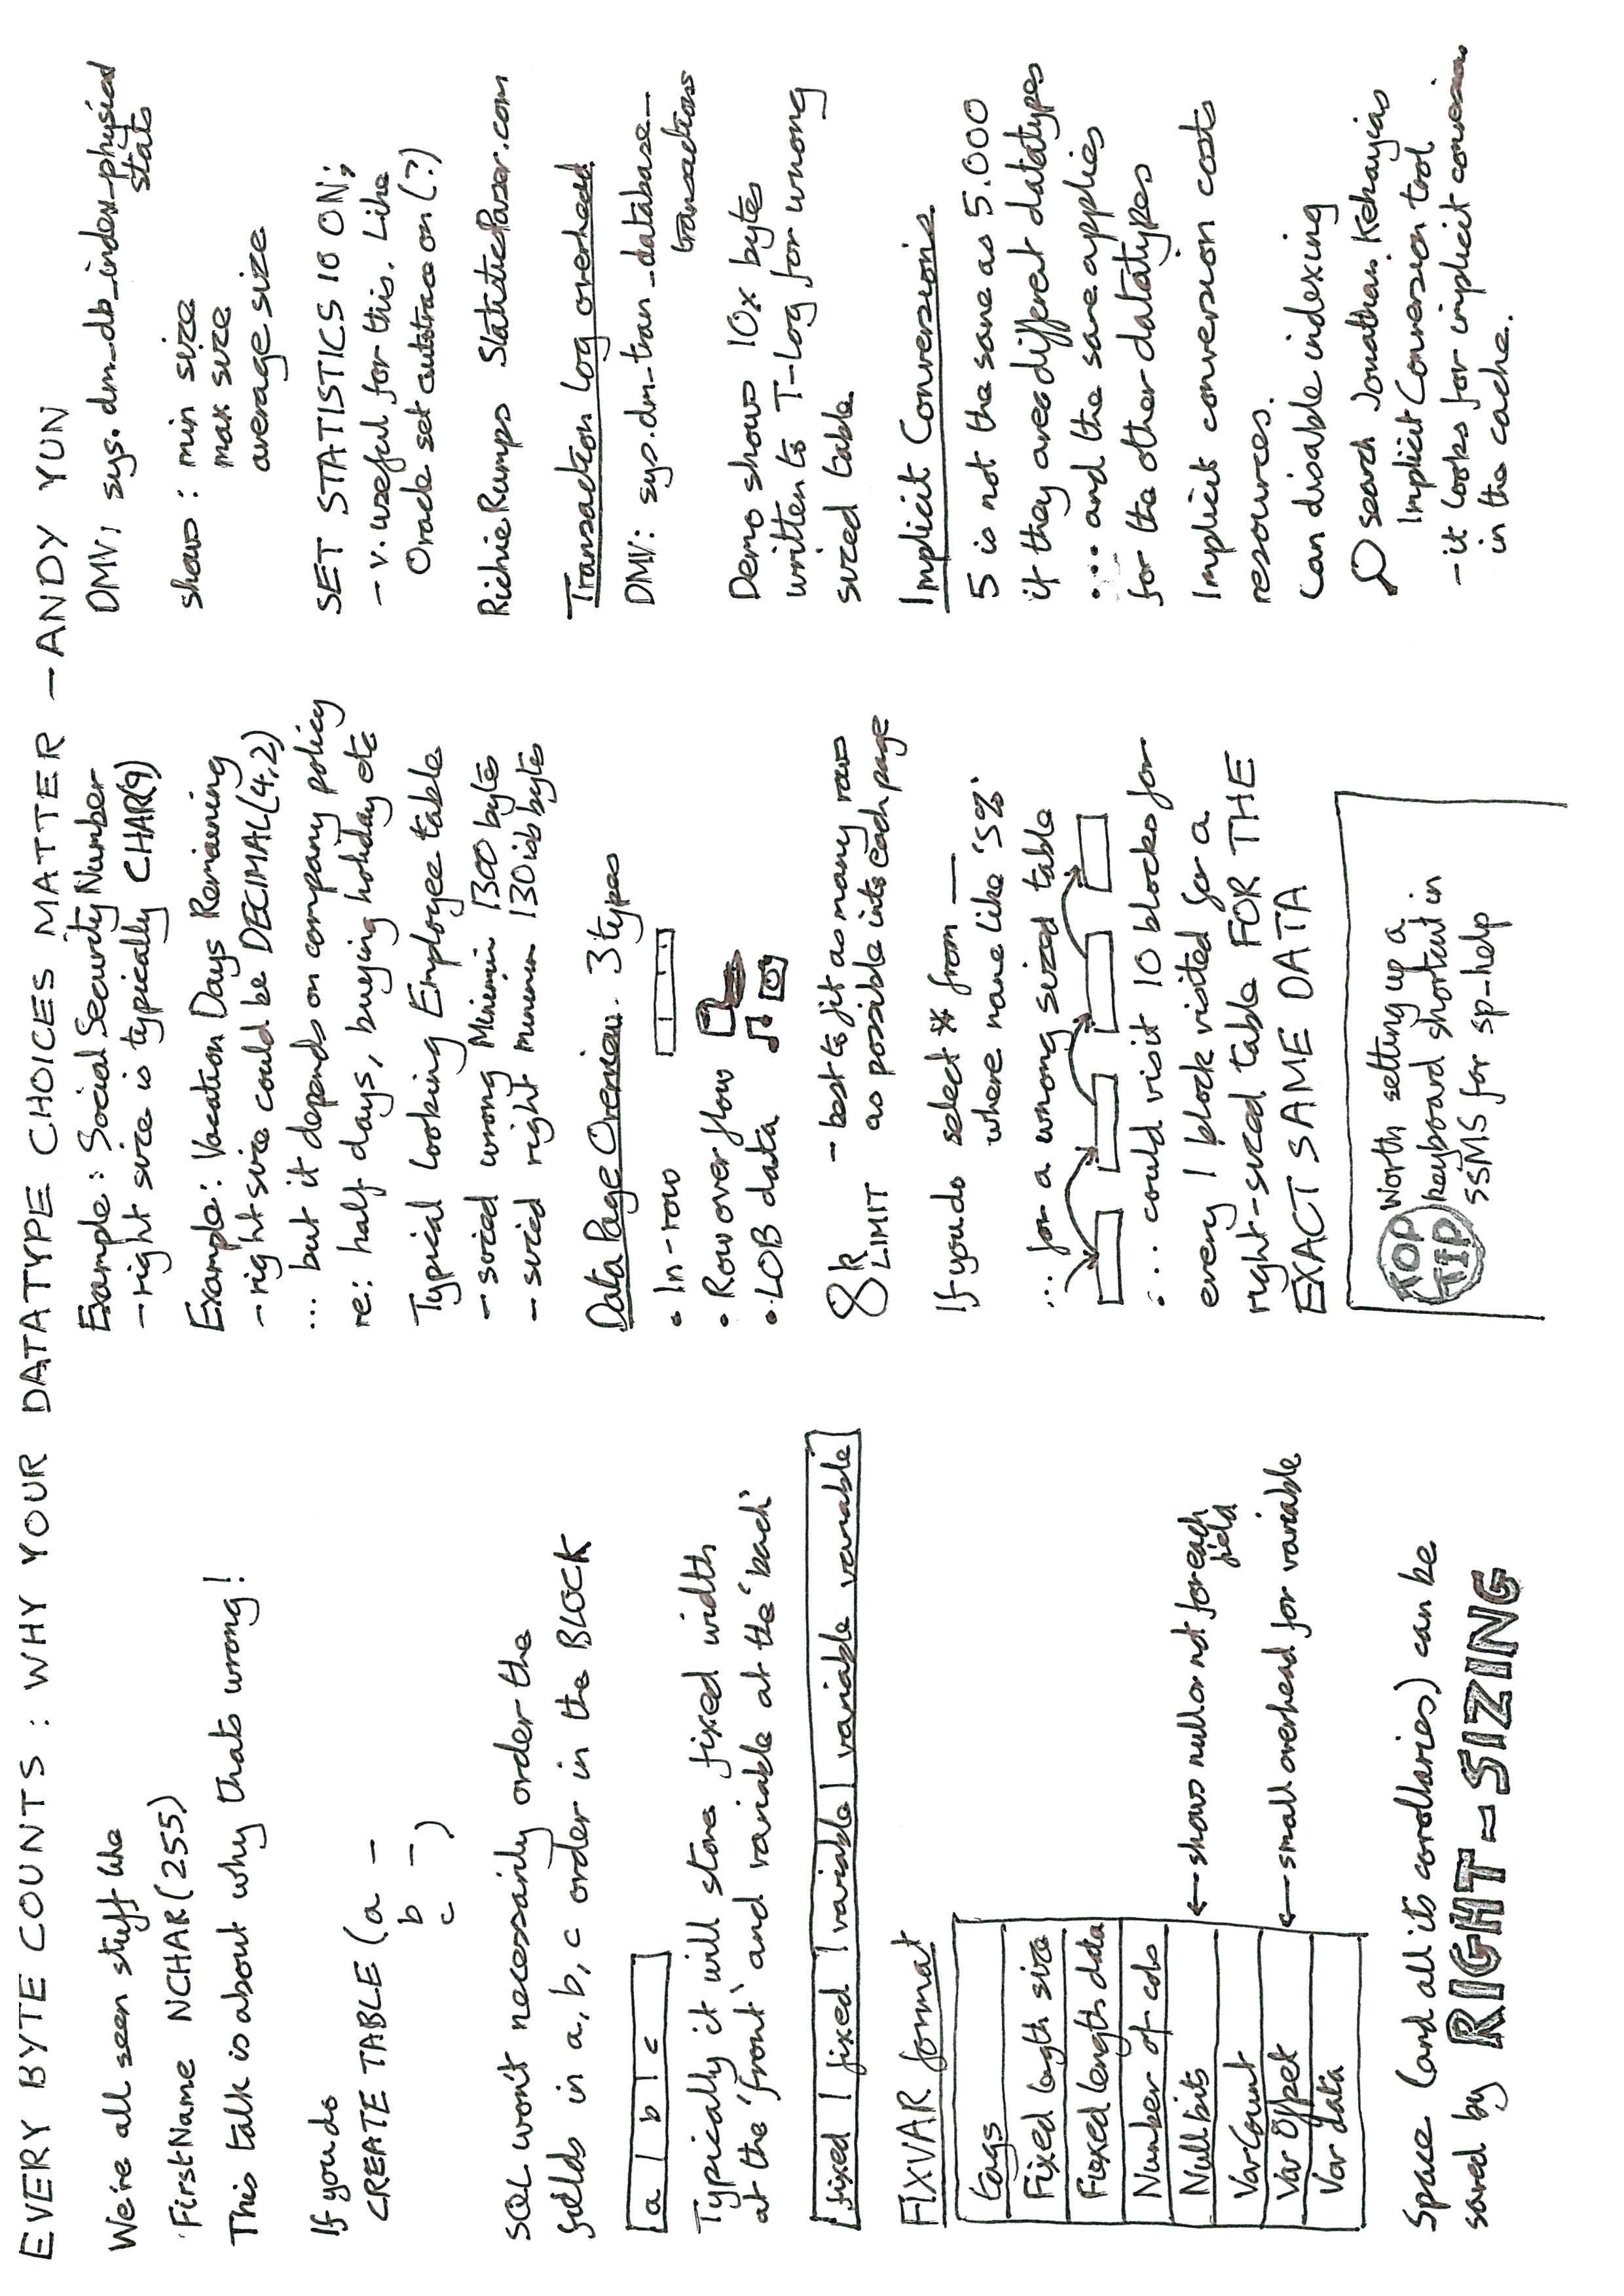 EVERY BYTE COUNTS : WHY YOUR DATATYPE CHOICES MATTER - ANDY YUN
We're all seen stuff like
'FirstName NCHAR(255)
This talk is about why thats wrong!
If you do
CREATE TABLE (a -
b -
c -)
SQL won't necessarily order the
fields in a, b, c order in the BLOCK
a | b | c
Typically it will store fixed width
at the 'front' and variable at the 'back'
fixed | fixed | variable | variable variable variable
FIXVAR format
tags
Fixed length size
Fixed length data
Number of cols
Null bits ← shows null or not for each
field
VarCount
Var Offset ← small overhead for variable
Var data
Space (and all its corollaries) can be
saved by RIGHT-SIZING
Example: Social Security Number
- right size is typically CHAR(9)
Example: Vacation Days Remaining
- right size could be DECIMAL(4,2)
... but it depends on company policy
re: half days, buying holiday etc
Typical looking Employee table
- sized wrong Minimim 1300 byte
- sized right 130 byte
Data Page Overview. 3 types
• In-row
• Row over flow
• LOB data
8k LIMIT - best to fit as many rows
as possible into each page
If you do select * from __
where name like 'S%'
... for a wrong sized table
... could visit 10 blocks for
every 1 block visited for a
right-sized table FOR THE
EXACT SAME DATA
TOP TIP Worth setting up a
keyboard shortcut in
SSMS for sp-help
DMV; sys.dm_db_index_physical
stats
shows : min size
max size
average size
SET STATISTICS IO ON;
- v. useful for this. Like
Oracle set autotrace on (?)
RichieRumps StatisticParser.com
Transaction Log overhead
DMV: sys.dm_tran_database_
transactions
Demo shows 10x bytes
written to T-Log for wrong
sized table
Implicit Conversions
5 is not the same as 5.000
if they are different datatypes
... and the same applies
for the other datatypes
Implicit conversion costs
resources.
Can disable indexing
search Jonathan Kehayias
Implicit Conversion tool
- it looks for implicit conversion
in the cache.